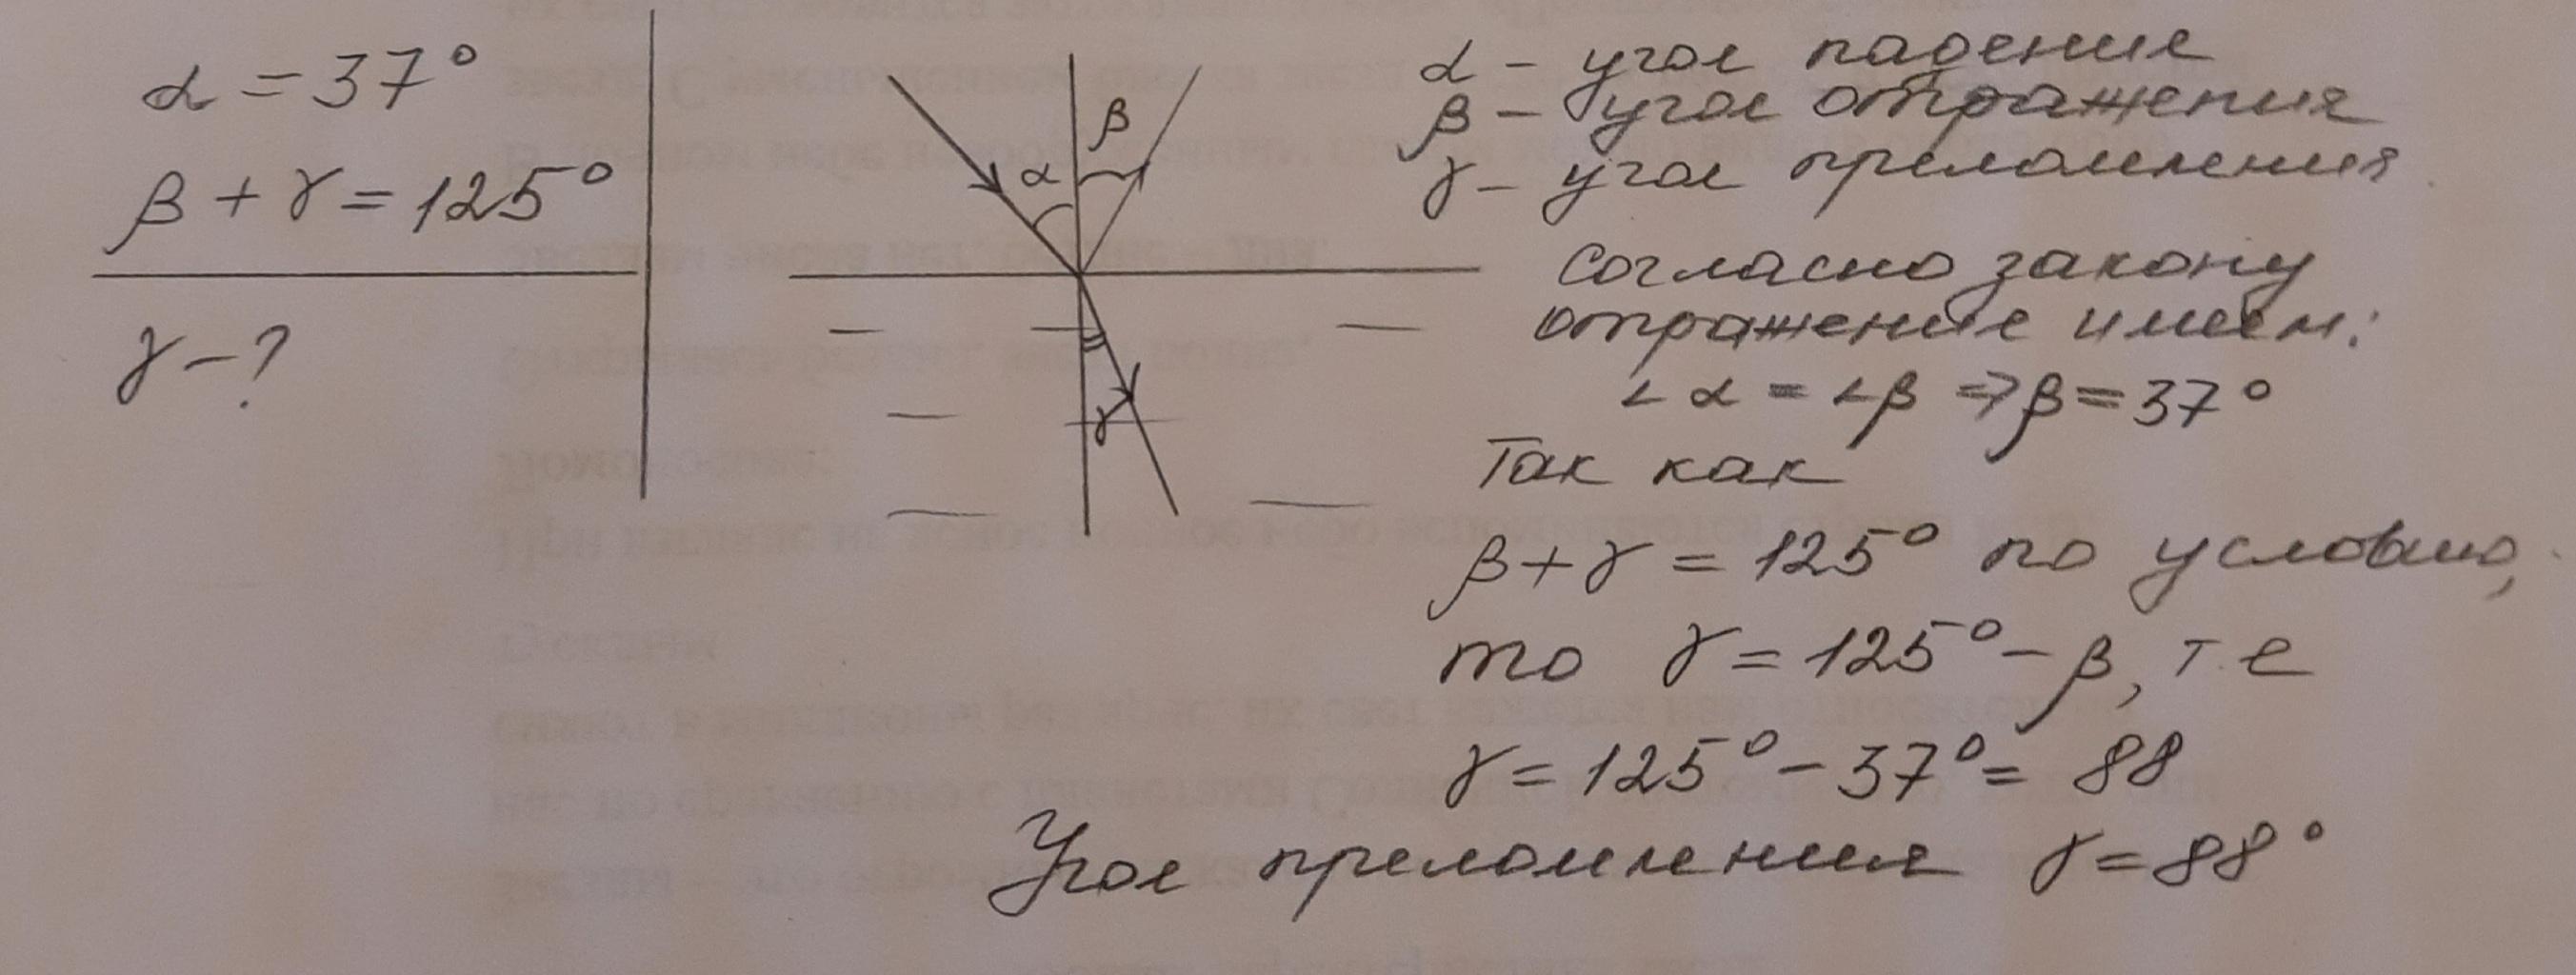 α = 37°
β + γ = 125°
γ - ?
α
β
γ
α - угол падение
β - угол отражения
γ - угол преломления
Согласно закону
отражение имеем:
∠α = ∠β ⇒ β = 37°
Так как
β + γ = 125° по условию,
то γ = 125° - β, т.е
γ = 125° - 37° = 88
Угол преломления γ = 88°